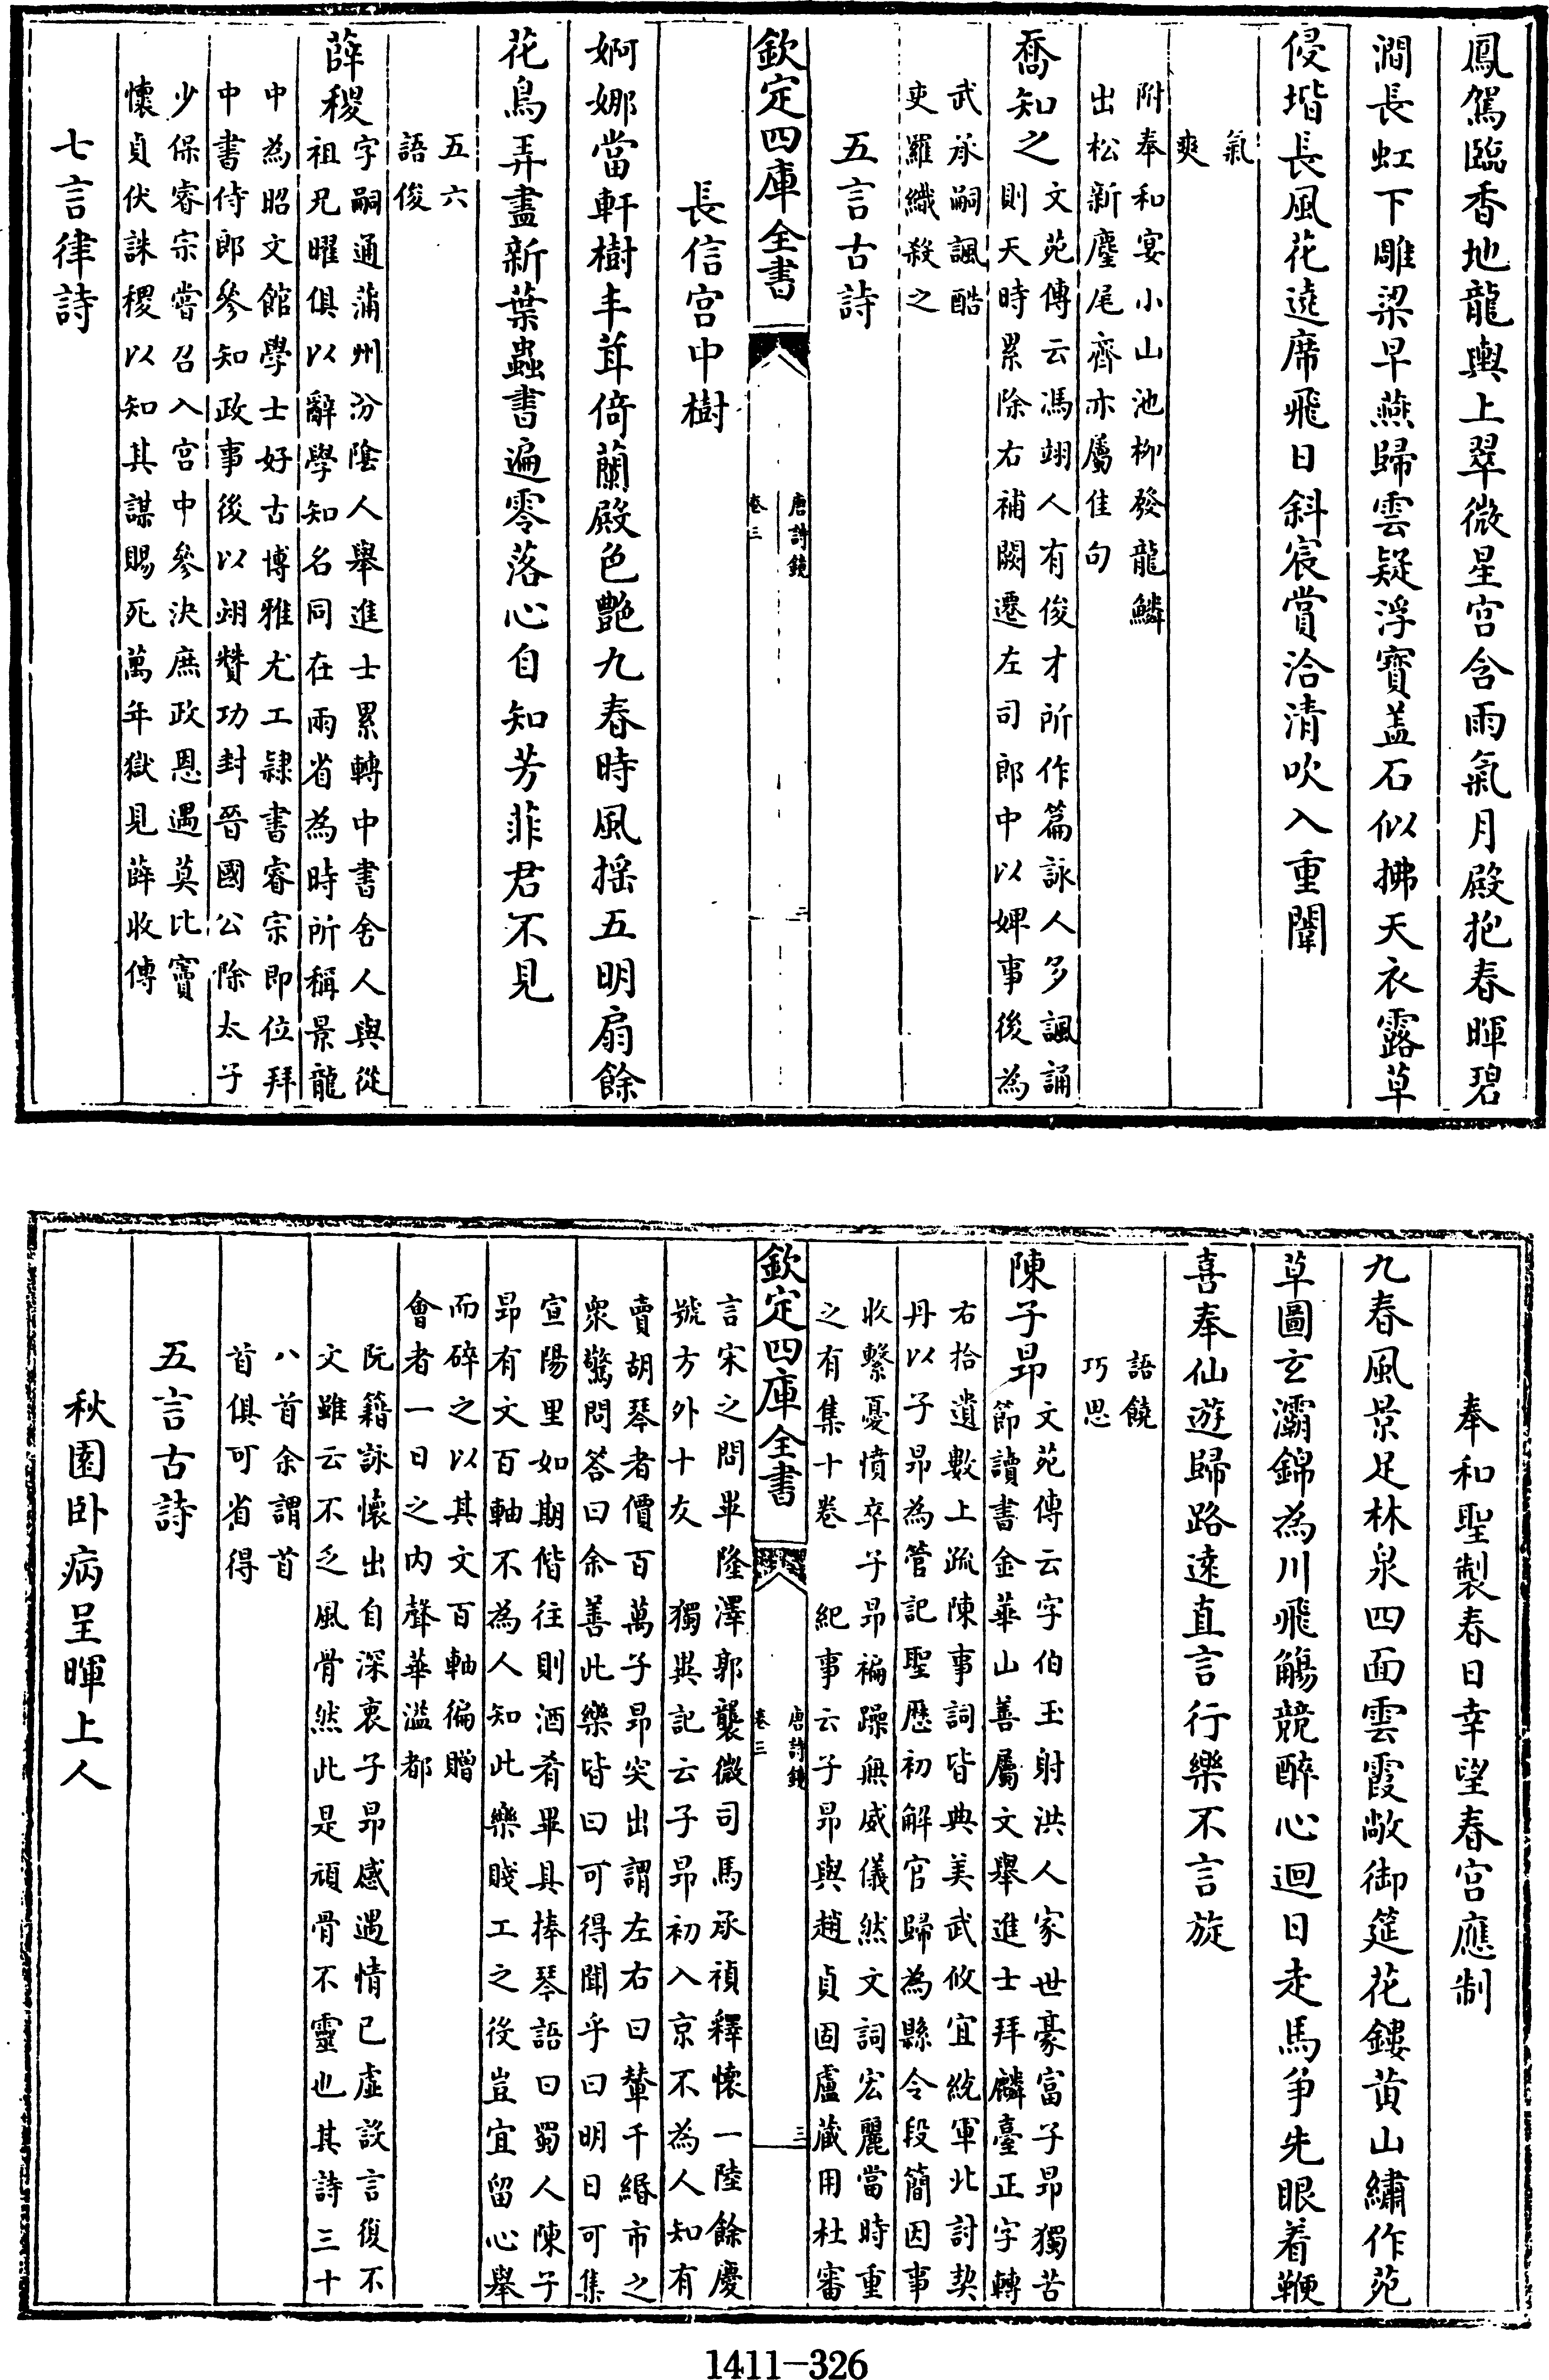 鳳駕臨香地龍輿上翠微星宮含雨氣月殿抱春暉碧
澗長虹下雕梁早燕歸雲疑浮寶蓋石似拂天衣露草
侵堦長風花遶席飛日斜宸賞洽清吹入重闈
氣
爽
附奉和宴小山池柳發龍鱗
出松新麈尾齊亦屬佳句
喬知之
文苑傳云馮翊人有俊才所作篇詠人多諷誦
則天時累除右補闕遷左司郎中以婢事後為
武承嗣諷酷
吏羅織殺之
五言古詩
欽定四庫全書
唐詩鏡
卷三
二
長信宮中樹
婀娜當軒樹丰茸倚蘭殿色艷九春時風搖五明扇餘
花鳥弄盡新葉蟲書遍零落心自知芳菲君不見
五六
語俊
薛稷
字嗣通蒲州汾陰人舉進士累轉中書舍人與從
祖兄曜俱以辭學知名同在兩省為時所稱景龍
中為昭文館學士好古博雅尤工隷書睿宗即位拜
中書侍郎參知政事後以翊贊功封晉國公除太子
少保睿宗嘗召入宮中參決庶政恩遇莫比竇
懷貞伏誅稷以知其謀賜死萬年獄見薛收傳
七言律詩
奉和聖製春日幸望春宮應制
九春風景足林泉四面雲霞敞御筵花鏤黃山繡作苑
草圖玄灞錦為川飛觴競醉心迴日走馬爭先眼着鞭
喜奉仙遊歸路遠直言行樂不言旋
語饒
巧思
陳子昻
文苑傳云字伯玉射洪人家世豪富子昻獨苦
節讀書金華山善屬文舉進士拜麟臺正字轉
右拾遺數上疏陳事詞皆典美武攸宜統軍北討契
丹以子昻為管記聖歷初解官歸為縣令段簡因事
收繫憂憤卒子昻褊躁無威儀然文詞宏麗當時重
之有集十卷　紀事云子昻與趙貞固盧藏用杜審
欽定四庫全書
唐詩鏡
卷三
三
言宋之問畢隆澤郭襲微司馬承禎釋懷一陸餘慶
號方外十友　獨異記云子昻初入京不為人知有
賣胡琴者價百萬子昻突出謂左右曰輦千緡市之
衆驚問答曰余善此樂皆曰可得聞乎曰明日可集
宣陽里如期偕往則酒肴畢具捧琴語曰蜀人陳子
昻有文百軸不為人知此樂賤工之役豈宜留心舉
而碎之以其文百軸徧贈
會者一日之內聲華溢都
阮籍詠懷出自深衷子昻感遇情已虛設言復不
文雖云不乏風骨然此是頑骨不靈也其詩三十
八首余謂首
首俱可省得
五言古詩
秋園卧病呈暉上人
1411-326